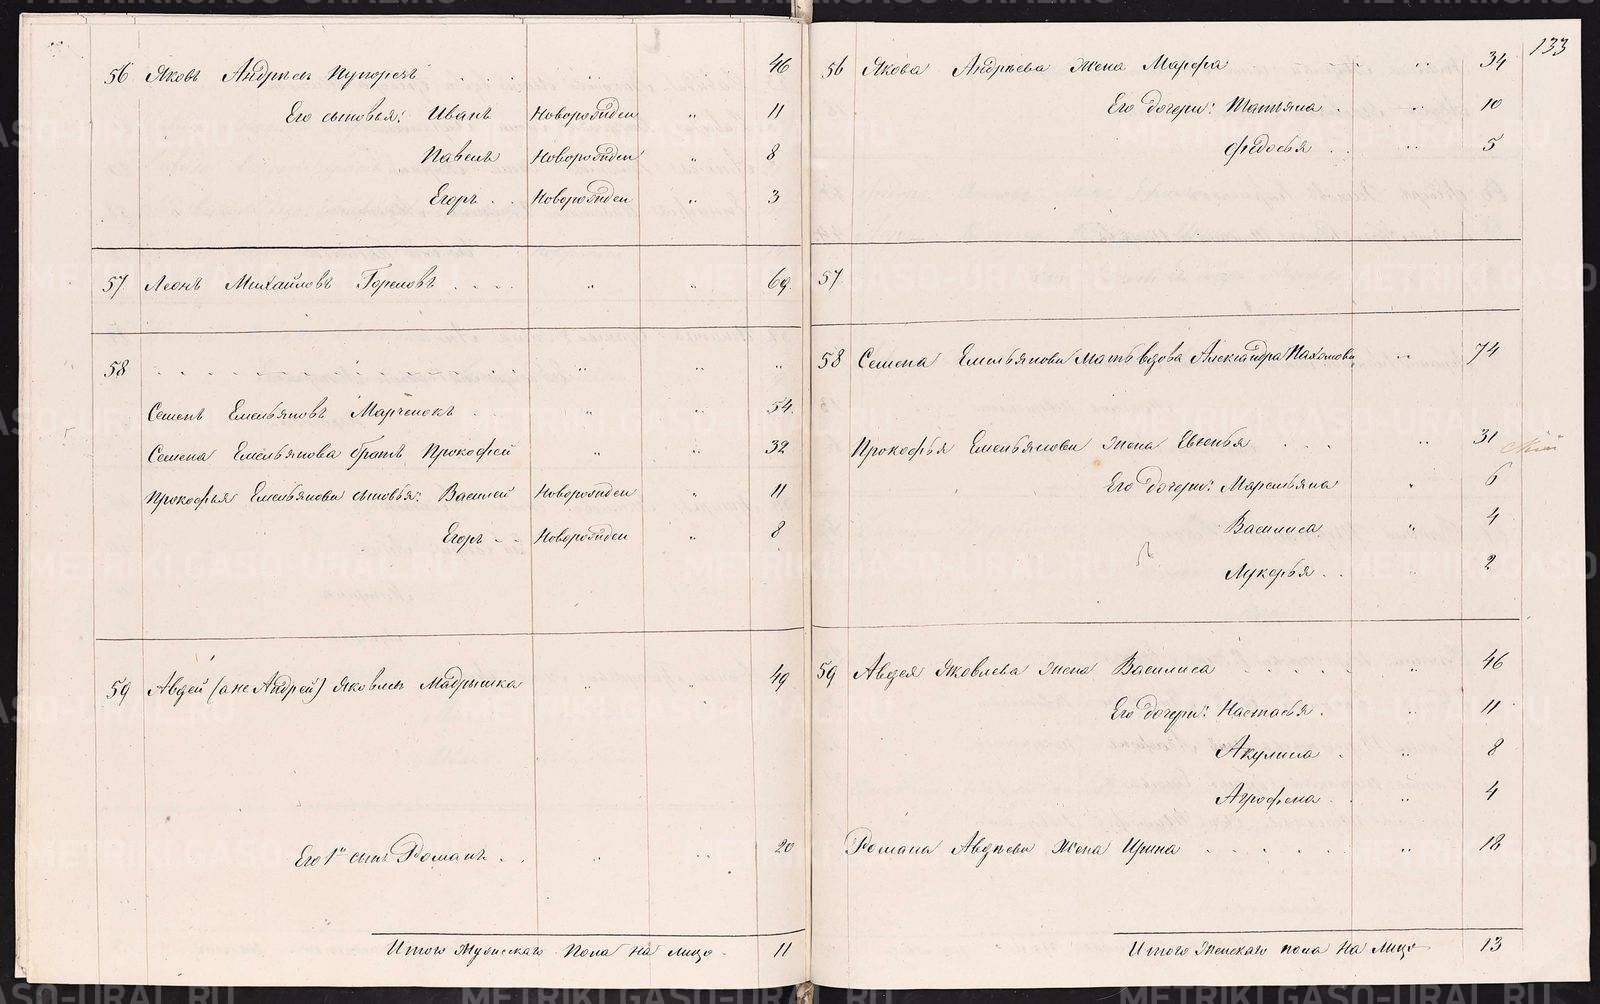 133
56 Яковъ Андреевъ Пупоревъ 46
Его сыновья: Иванъ Новорожден „ 11
Павелъ Новорожден „ 8
Егоръ Новорожден „ 3
57 Леонъ Михайловъ Гореловъ „ „ 69.
58 „ „ „
Семенъ Емельяновъ Марченокъ „ „ 54.
Семена Емельянова братъ Прокофей „ „ 32
Прокофья Емельянова сыновья: Василей Новорожден „ 11
Егоръ Новорожден „ 8
59 Авдей (а не Андрей) Яковлевъ Мадрышка „ „ 49
Его 1й сынъ Романъ „ „ 20
Итого мужескаго пола на лицо 11
56 Якова Андреева жена Марфа „ „ 34
Его дочери: Татьяна „ 10
Федосья „ 5
57
58 Семена Емельянова мать вдова Александра Пахомова „ 74
Прокофья Емельянова жена Евгенья „ 31
Его дочери: Маремьяна „ 6
Василиса „ 4
Лукерья „ 2
59 Авдея Яковлева жена Василиса „ 46
Его дочери: Настасья „ 11
Акулина „ 8
Агрофена „ 4
Романа Авдеева жена Ирина „ 18
Итого женскаго пола на лицо 13
METRIKI.GASO-URAL.RU